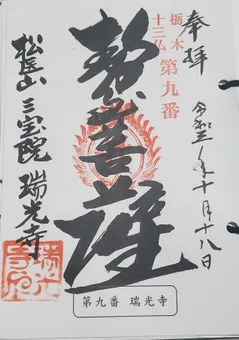 奉拝
令和三年十月十八日
栃木
十三仏
第九番
勢至菩薩
三宝院
瑞光寺
第九番 瑞光寺